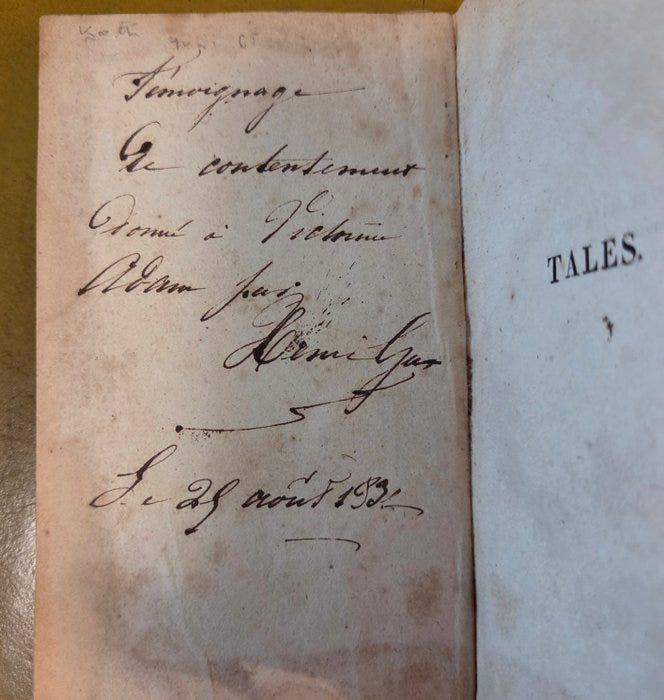 Témoignage
De contentement
Donné à Victorine
Adam par
Henri
Le 25 août 183
TALES.